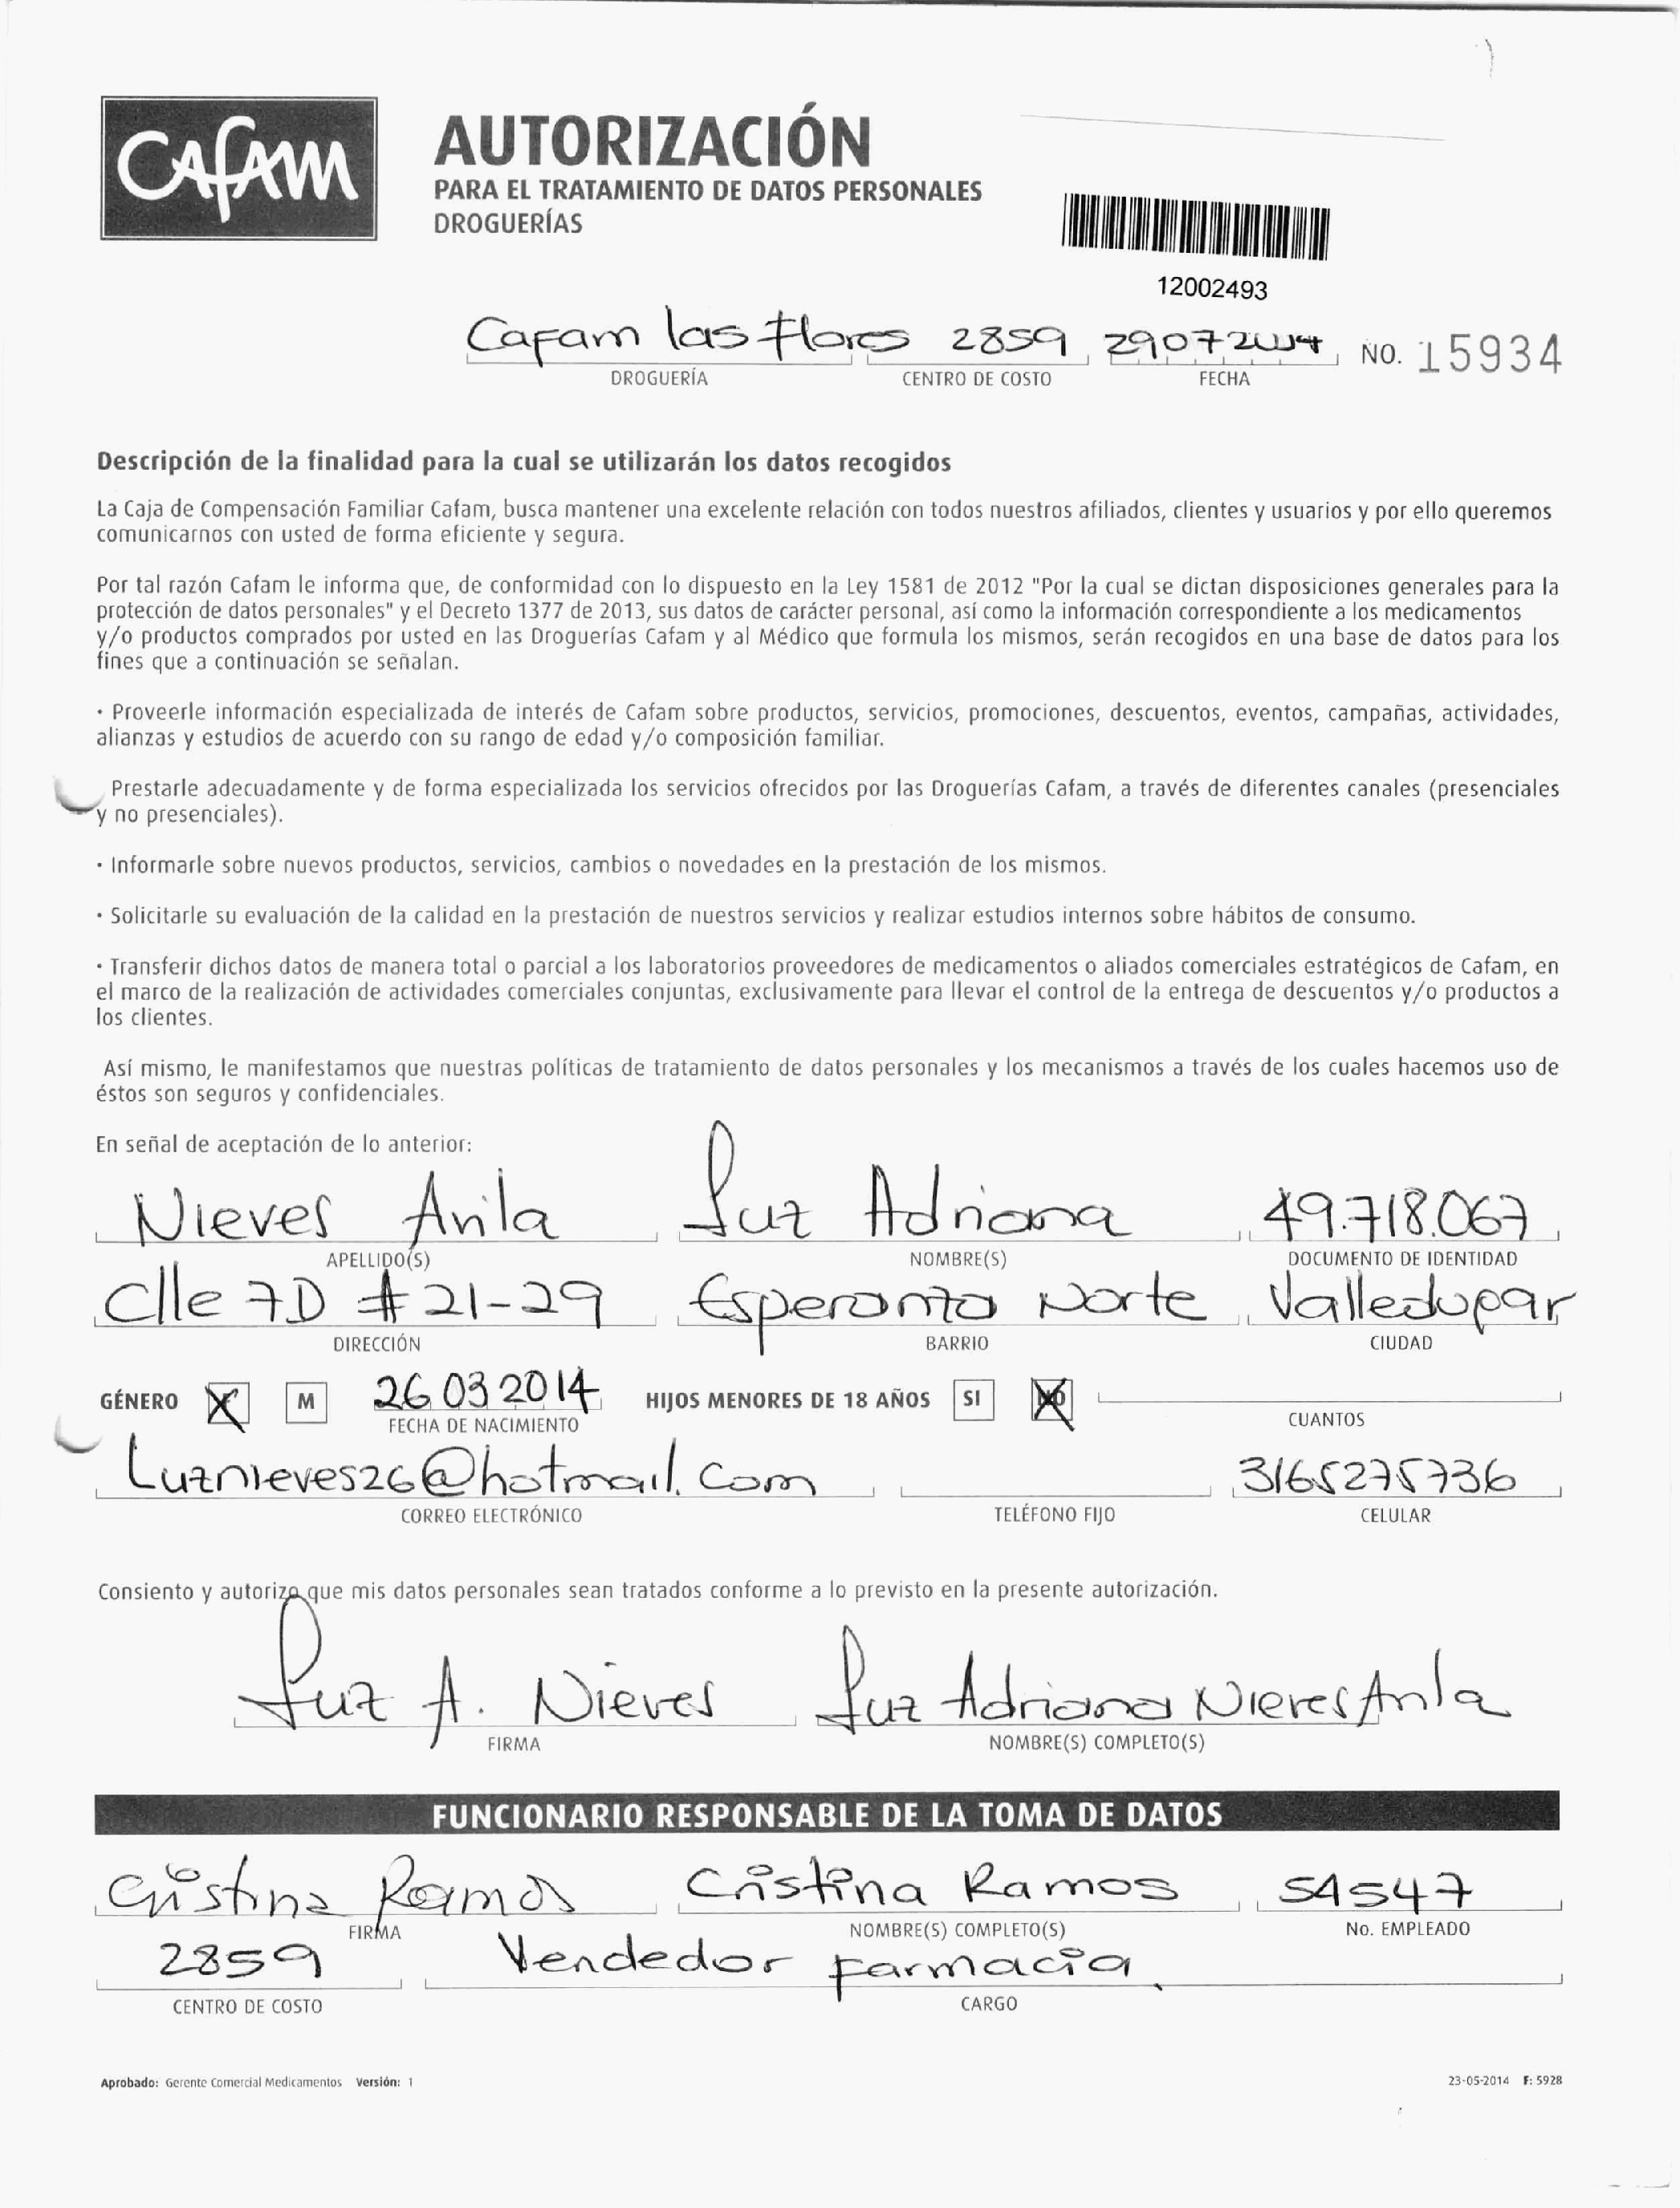 CAFAM
AUTORIZACIÓN
PARA EL TRATAMIENTO DE DATOS PERSONALES
DROGUERÍAS
12002493
Cafam las flores 2859 29072014 NO. 15934
DROGUERÍA CENTRO DE COSTO FECHA
Descripción de la finalidad para la cual se utilizarán los datos recogidos
La Caja de Compensación Familiar Cafam, busca mantener una excelente relación con todos nuestros afiliados, clientes y usuarios y por ello queremos
comunicarnos con usted de forma eficiente y segura.
Por tal razón Cafam le informa que, de conformidad con lo dispuesto en la Ley 1581 de 2012 "Por la cual se dictan disposiciones generales para la
protección de datos personales" y el Decreto 1377 de 2013, sus datos de carácter personal, así como la información correspondiente a los medicamentos
y/o productos comprados por usted en las Droguerías Cafam y al Médico que formula los mismos, serán recogidos en una base de datos para los
fines que a continuación se señalan.
· Proveerle información especializada de interés de Cafam sobre productos, servicios, promociones, descuentos, eventos, campañas, actividades,
alianzas y estudios de acuerdo con su rango de edad y/o composición familiar.
Prestarle adecuadamente y de forma especializada los servicios ofrecidos por las Droguerías Cafam, a través de diferentes canales (presenciales
y no presenciales).
· Informarle sobre nuevos productos, servicios, cambios o novedades en la prestación de los mismos.
· Solicitarle su evaluación de la calidad en la prestación de nuestros servicios y realizar estudios internos sobre hábitos de consumo.
· Transferir dichos datos de manera total o parcial a los laboratorios proveedores de medicamentos o aliados comerciales estratégicos de Cafam, en
el marco de la realización de actividades comerciales conjuntas, exclusivamente para llevar el control de la entrega de descuentos y/o productos a
los clientes.
Así mismo, le manifestamos que nuestras políticas de tratamiento de datos personales y los mecanismos a través de los cuales hacemos uso de
éstos son seguros y confidenciales.
En señal de aceptación de lo anterior:
Nieves Avila Luz Adriana 49.718.067
APELLIDO(S) NOMBRE(S) DOCUMENTO DE IDENTIDAD
Clle 7D # 21-29 Esperanza Norte Valledupar
DIRECCIÓN BARRIO CIUDAD
GÉNERO X M 26 03 2014 HIJOS MENORES DE 18 AÑOS SI NO
FECHA DE NACIMIENTO CUANTOS
Luznieves26@hotmail.com 3165275736
CORREO ELECTRÓNICO TELÉFONO FIJO CELULAR
Consiento y autorizo que mis datos personales sean tratados conforme a lo previsto en la presente autorización.
Luz A. Nieves Luz Adriana Nieves Avila
FIRMA NOMBRE(S) COMPLETO(S)
FUNCIONARIO RESPONSABLE DE LA TOMA DE DATOS
Cristina Ramos Cristina Ramos 54547
FIRMA NOMBRE(S) COMPLETO(S) No. EMPLEADO
2859 Vendedor farmacia
CENTRO DE COSTO CARGO
Aprobado: Gerente Comercial Medicamentos Versión: 1 23-05-2014 F: 5928